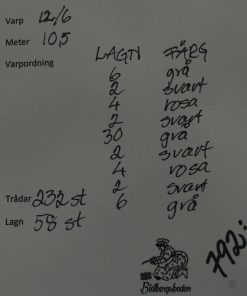 Varp 12/6
Meter 10,5
Varpordning
LAGN FÄRG
6 grå
2 svart
4 rosa
2 svart
30 grå
2 svart
4 rosa
2 svart
6 grå
Trådar 232 st
Lagn 58 st
792:-